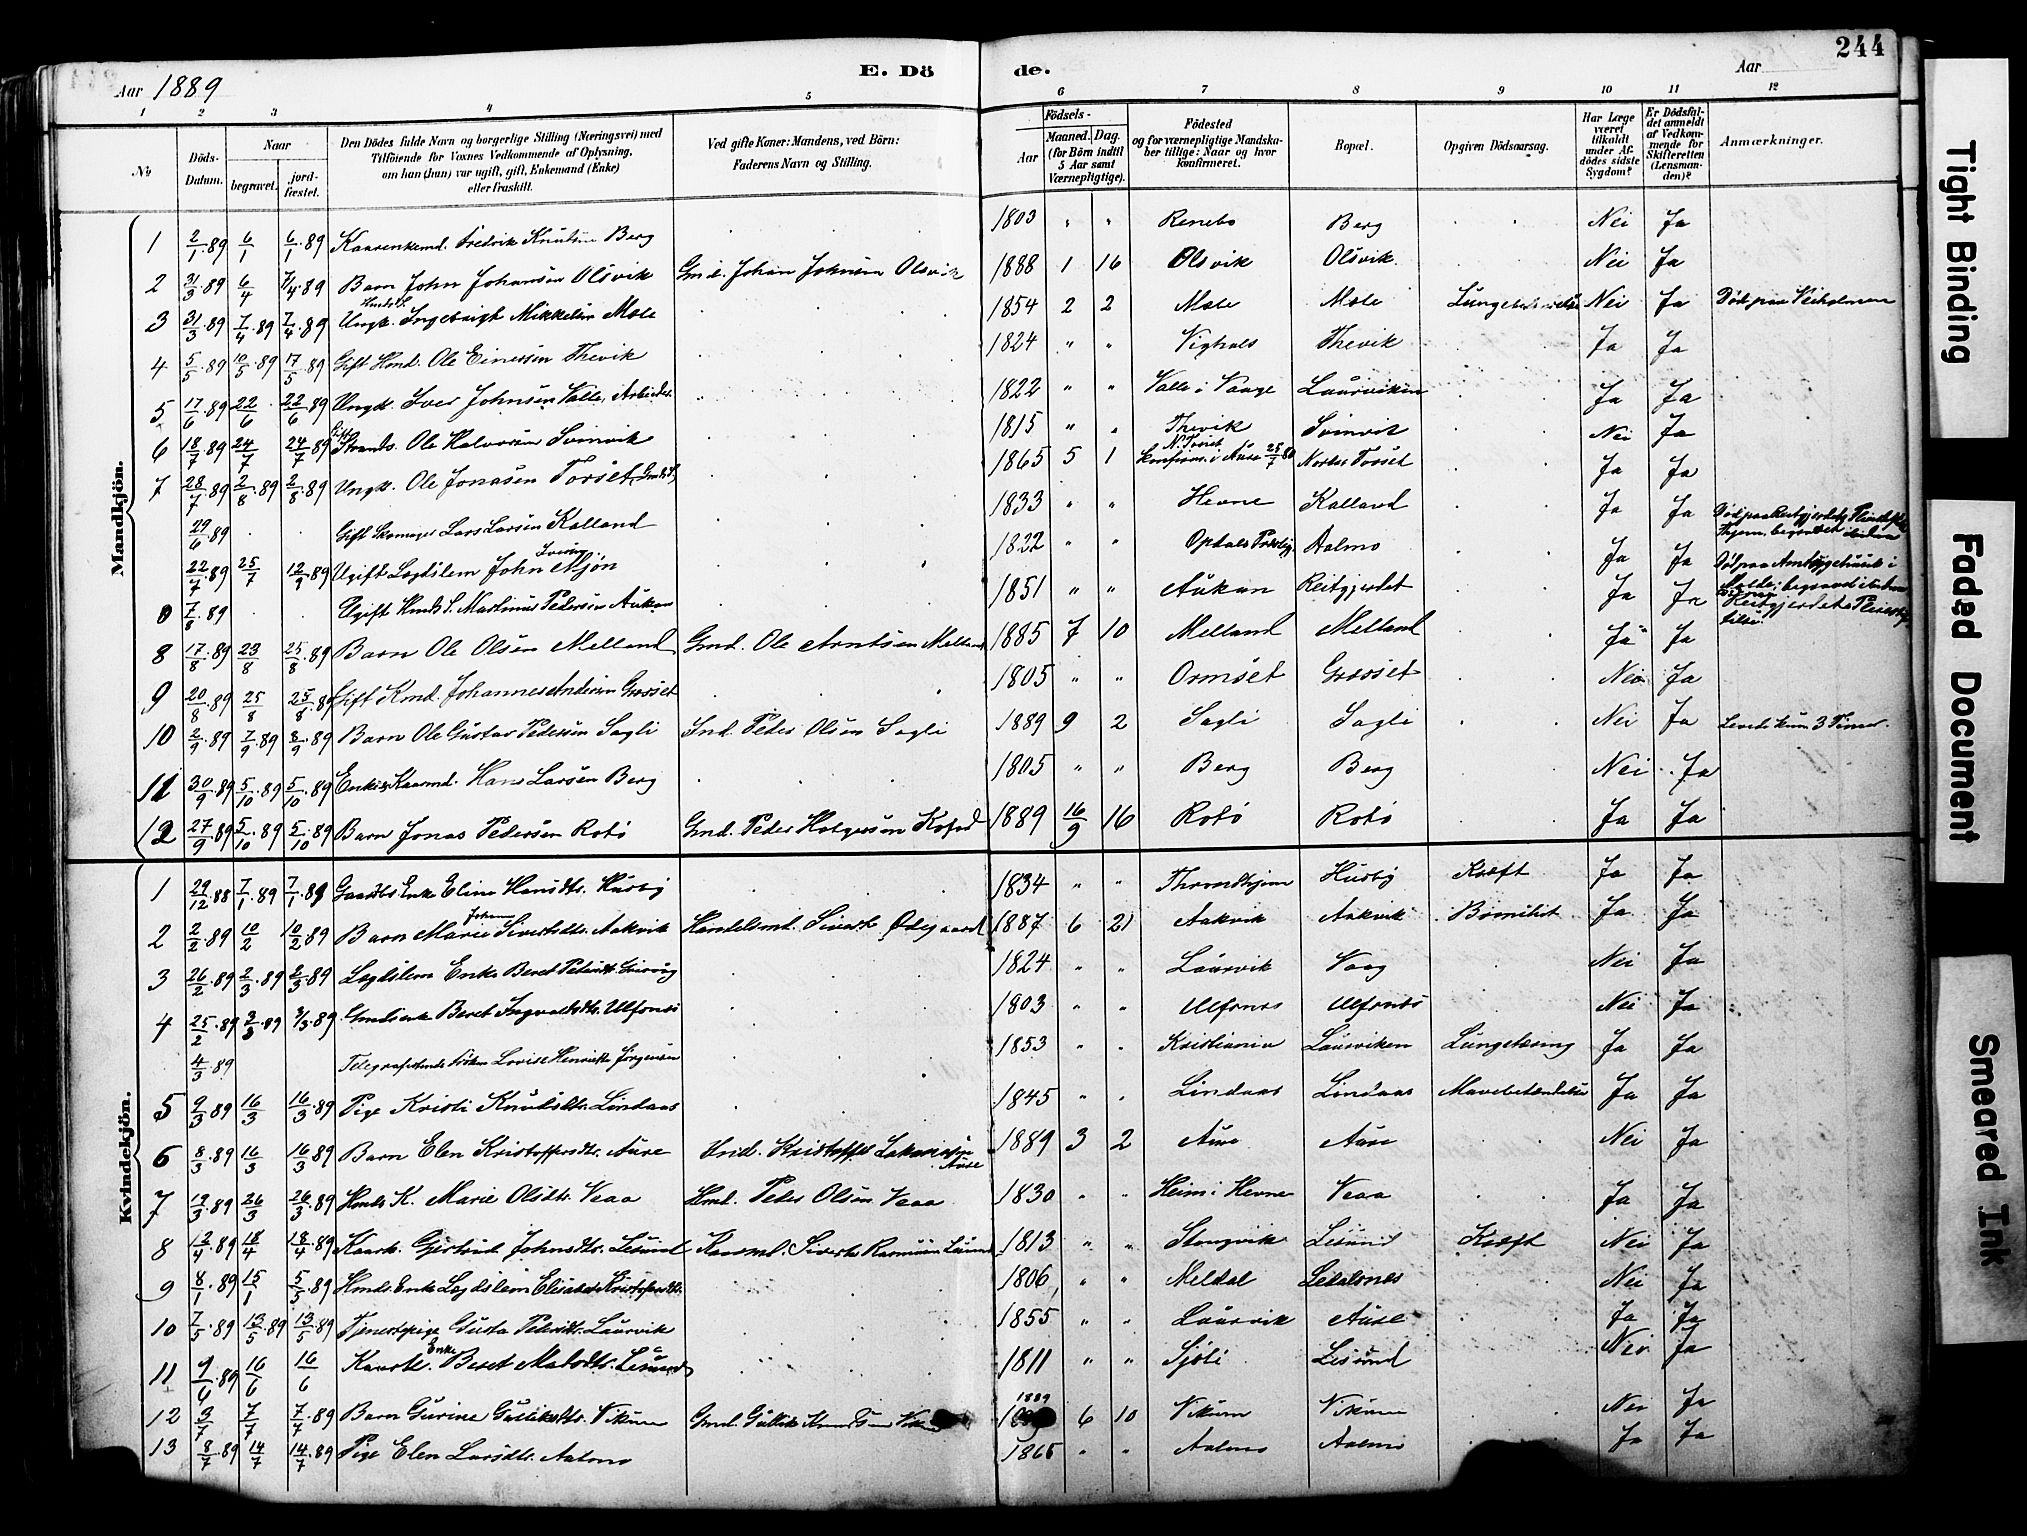 244
E. Dö de.
Aar 1889
Aar
1 2 3 4 5 6 7 8 9 10 11 12
No
Döds-Datum.
Naar
begravet.
jordfæstet.
Den Dödes fulde Navn og borgerlige Stilling (Næringsvei) med
Tilföiende for Voxnes Vedkommende af Oplysning,
om han (hun) var ugift, gift, Enkemand (Enke)
eller fraskilt.
Ved gifte Koner: Mandens, ved Börn:
Faderens Navn og Stilling.
Födsels-
Aar
Maaned. Dag.
(for Börn indtil
5 Aar samt
Værnepligtige).
Födested
og for værnepligtige Mandskaber tillige: Naar og hvor
konfirmeret.
Bopæl.
Opgiven Dödsaarsag.
Har Læge
været
tilkaldt
under Afdödes sidste
Sygdom?
Er Dödsfaldet anmeldt
af Vedkommende for
Skifteretten
(Lensmanden)?
Anmærkninger.
Mandkjön.
1 2/1.89 6/1 6/1.89 Fredrik Knutsen Berg 1803 " " Renebo Berg Nei Ja
2 31/3.89 6/4 7/4.89 Barn John Johansen Olsvik Gmd. Johan Johnsen Olsvik 1888 1 16 Olsvik Olsvik Nei Ja
3 31/3.89 7/4.89 7/4.89 Ungk. Ingebrigt Mikkelsen Mole 1854 2 2 Mole Mole Nei Ja Död paa Veiholmen
4 5/5.89 10/5.89 17/5.89 Gift Hmd. Ole Einersen Thevik 1824 " " Thevik Ja Ja
5 17/6.89 22/6 22/6.89 Ungk. Iver Johnsen Valle, Arbeider 1822 " " Valle i Vaage Laurviken Ja Ja
6 18/7.89 24/7 24/7.89 Gift Strands. Ole Halvorsen Svinvik 1815 " " Thevik Svinvik Nei Ja
7 28/7.89 2/8.89 2/8.89 Ungk. Ole Jonasen Torset 1865 5 1 N. Torset konfirm. i Aure 25/7 80 Nordre Torset Ja Ja
29/6.89 Gift Skomager Lars Larsen Kalland 1833 " " Hevne Kalland Ja Ja
22/7.89 25/7 12/9.89 Ugift Lægdslem John Mjøn 1822 " " Opdals Aalmo Ja Ja
7/8.89 Ugift Martinus Pedersen Aukan 1851 " " Aukan Reitgjerdet Ja Ja
8 17/8.89 23/8 25/8.89 Barn Ole Olsen Melland Gmd. Ole Arntsen Melland 1885 7 10 Melland Melland Ja Ja
9 20/8.89 25/8 25/8.89 Gift Kmd. Johannes Andersen Grosset 1805 " " Ormset Grosset Nei Ja
10 2/9.89 7/9.89 8/9.89 Barn Ole Gustav Pedersen Sagli Ind. Peder Olsen Sagli 1889 9 2 Sagli Sagli Nei Ja Levede kun 3 Timer
11 30/9.89 5/10.89 5/10.89 Hans Larsen Berg 1805 " " Berg Berg Nei Ja
12 27/9.89 5/10.89 5/10.89 Barn Jonas Pedersen Rotö Gmd. Peder 1889 16/9 16 Rotö Rotö Ja Ja
Kvindekjön.
1 29/12.88 7/1.89 7/1.89 Enke Eline Hansdtr. Husby 1834 " " Throndhjem Husby Kræft Ja Ja
2 2/2.89 10/2 10/2.89 Barn Marie Sivertsdtr. Aakvik Handelsmd. Sivert Ødegaard 1887 6 21 Aakvik Aakvik Ja Ja
3 26/2.89 2/3.89 2/3.89 Lægdslem Enke Beret Pedersdtr. 1824 " " Laurvik Vaag Nei Ja
4 25/2.89 3/3.89 3/3.89 Gmdsenke Beret Ingvaldsdtr. Ulfsnes 1803 " " Ulfsnes Ulfsnes Nei Ja
4/3.89 Fröken Lovise Henriette Jörgensen 1853 " " Kristiania Laurviken Lungetæring Ja Ja
5 9/3.89 16/3 16/3.89 Pige Kristi Knudsdtr. Lindaas 1845 " " Lindaas Lindaas Mavebetændelse Ja Ja
6 8/3.89 16/3 16/3.89 Barn Elen Kristoffersdtr. Aure Ind. Kristoffer Aure 1889 3 2 Aure Aure Nei Ja
7 19/3.89 26/3 26/3.89 Hmds K. Marie Olsdtr. Veaa Hmd. Peder Olsen Veaa 1830 " " Heim i Hevne Veaa Ja Ja
8 12/4.89 18/4 18/4.89 Gjertrud Johnsdtr. Lesund Sivert Rasmussen Lesund 1813 " " Stangvik Lesund Kræft Nei Ja
9 8/1.89 15/1 5/5.89 Hmds Enke Lægdslem Elisabet Kristoffersdtr. 1806 " " Meldal Ledalsnes Nei Ja
10 7/5.89 13/5.89 13/5.89 Tjenestepige Gusta Pedersdtr. Laurvik 1855 " " Laurvik Aure Ja Ja
11 9/6.89 16/6 16/6 Enke Beret Lesund 1811 " " Sjöli Lesund Nei Ja
12 3/7 7/7 7/7.89 Barn Gurine Gulliksdtr. Vikum Gmd. Gullik 1889 6 10 Vikum Vikum Nei Ja
13 8/7.89 14/7 14/7.89 Pige Elen Larsdtr. Aalmo 1865 " " Aalmo Aalmo Ja Ja
Tight Binding
Faded Document
Smeared Ink